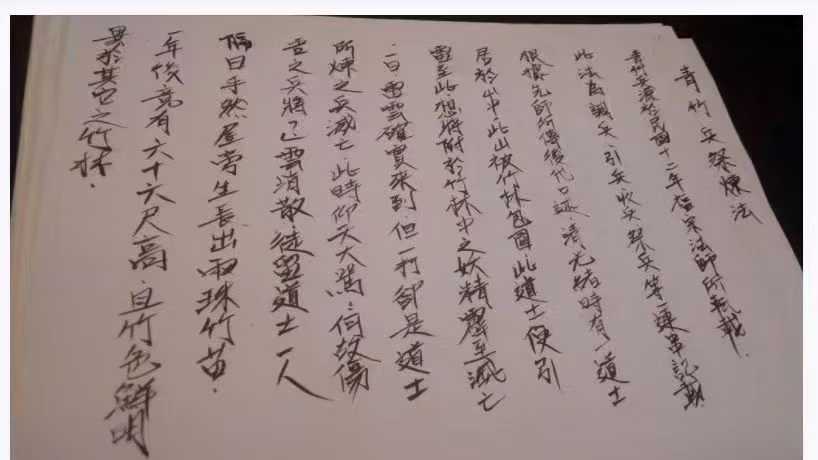 青竹兵祭煉法
青竹兵源於民國十二年檀宗法師所轉載.
此法為調兵、引兵收兵祭兵等連串記載.
根據先師所傳後代口述、清光緒時有一道士
居於山中.此山被竹林包圍.此道士便引
雷至此想將附於竹林中之妖精.擊至滅亡
一日.雷雲確實來到.但一打卻是道士
所煉之兵滅亡.此時仰天大罵.何故傷
吾之兵將.已雲消散.徒留道士一人
隔日手然屋旁生長出兩珠竹苗.
一年後竟有六十六尺高.且竹色鮮明
異於其它之竹林.